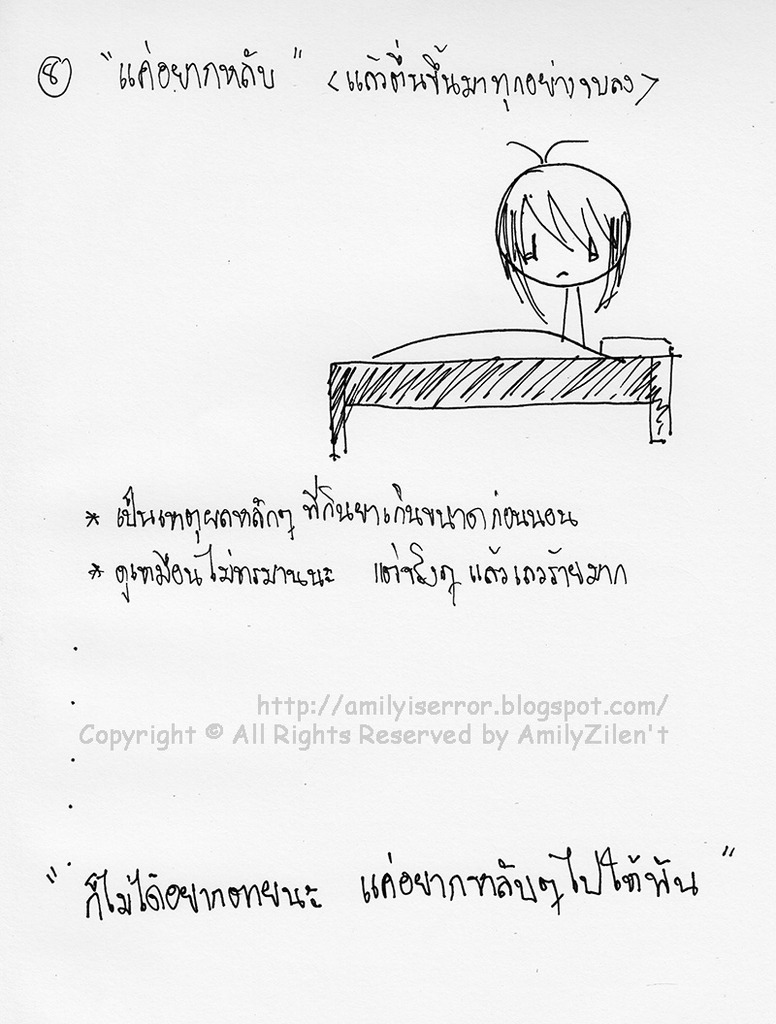 8 "แค่อยากหลับ" <แล้วตื่นขึ้นมาทุกอย่างจบลง>
* เป็นเหตุผลหลักๆ ที่กินยาเกินขนาดก่อนนอน
* ดูเหมือนไม่ทรมานนะ แต่จริงๆ แล้วเลวร้ายมาก
http://amilyiserror.blogspot.com/
Copyright © All Rights Reserved by AmilyZilen't
"ก็ไม่ได้อยากตายนะ แค่อยากหลับๆ ไปให้พ้น"